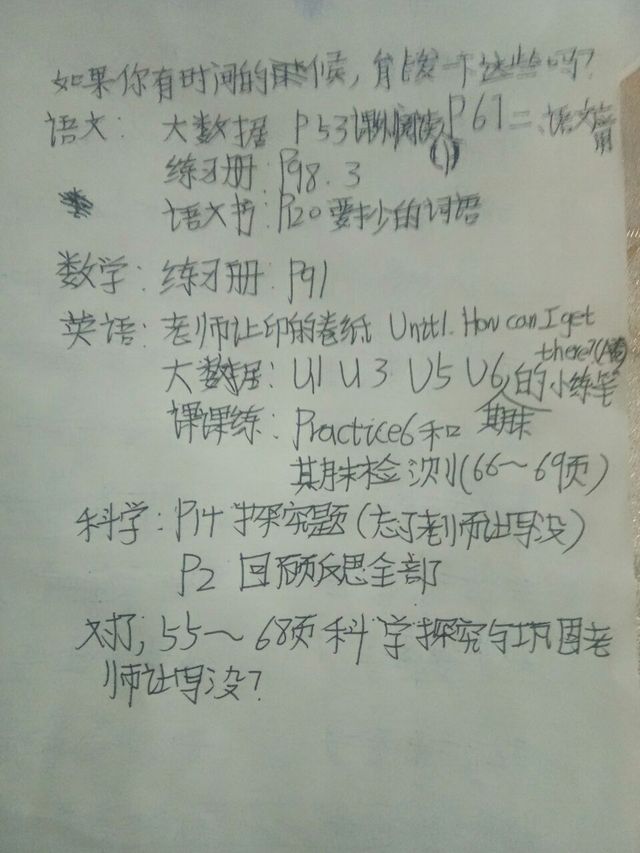 如果你有时间的时候，能发一下这些吗？
语文：大数据 P53课外阅读 P67二、语文篇
练习册：P98.3
语文书：P120要抄的词语
数学：练习册：P91
英语：老师让印的卷纸 Unit1. How can I get there?
大数据：U1 U3 U5 U6的小练笔
期末
课课练：Practice6和
其期末检测(66～69页)
科学：P14探究题(忘了老师让写没)
P2 回顾反思全部
对了，55～68页科学探究与巩固老
师让写没？